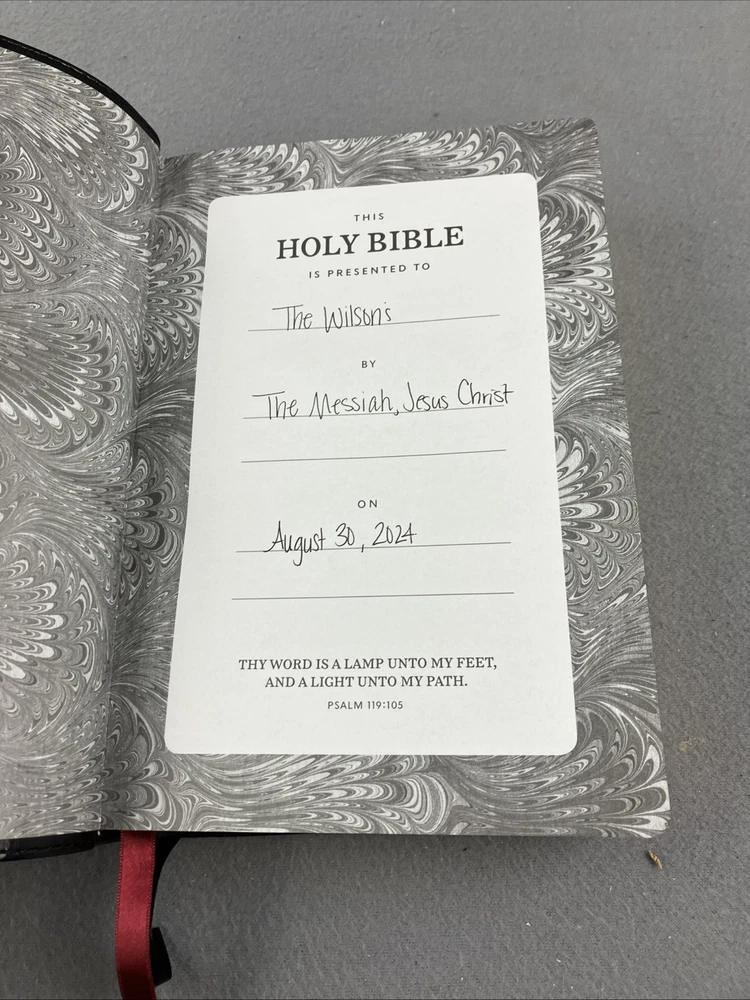 THIS
HOLY BIBLE
IS PRESENTED TO
The Wilson's
BY
The Messiah, Jesus Christ
ON
August 30, 2024
THY WORD IS A LAMP UNTO MY FEET,
AND A LIGHT UNTO MY PATH.
PSALM 119:105